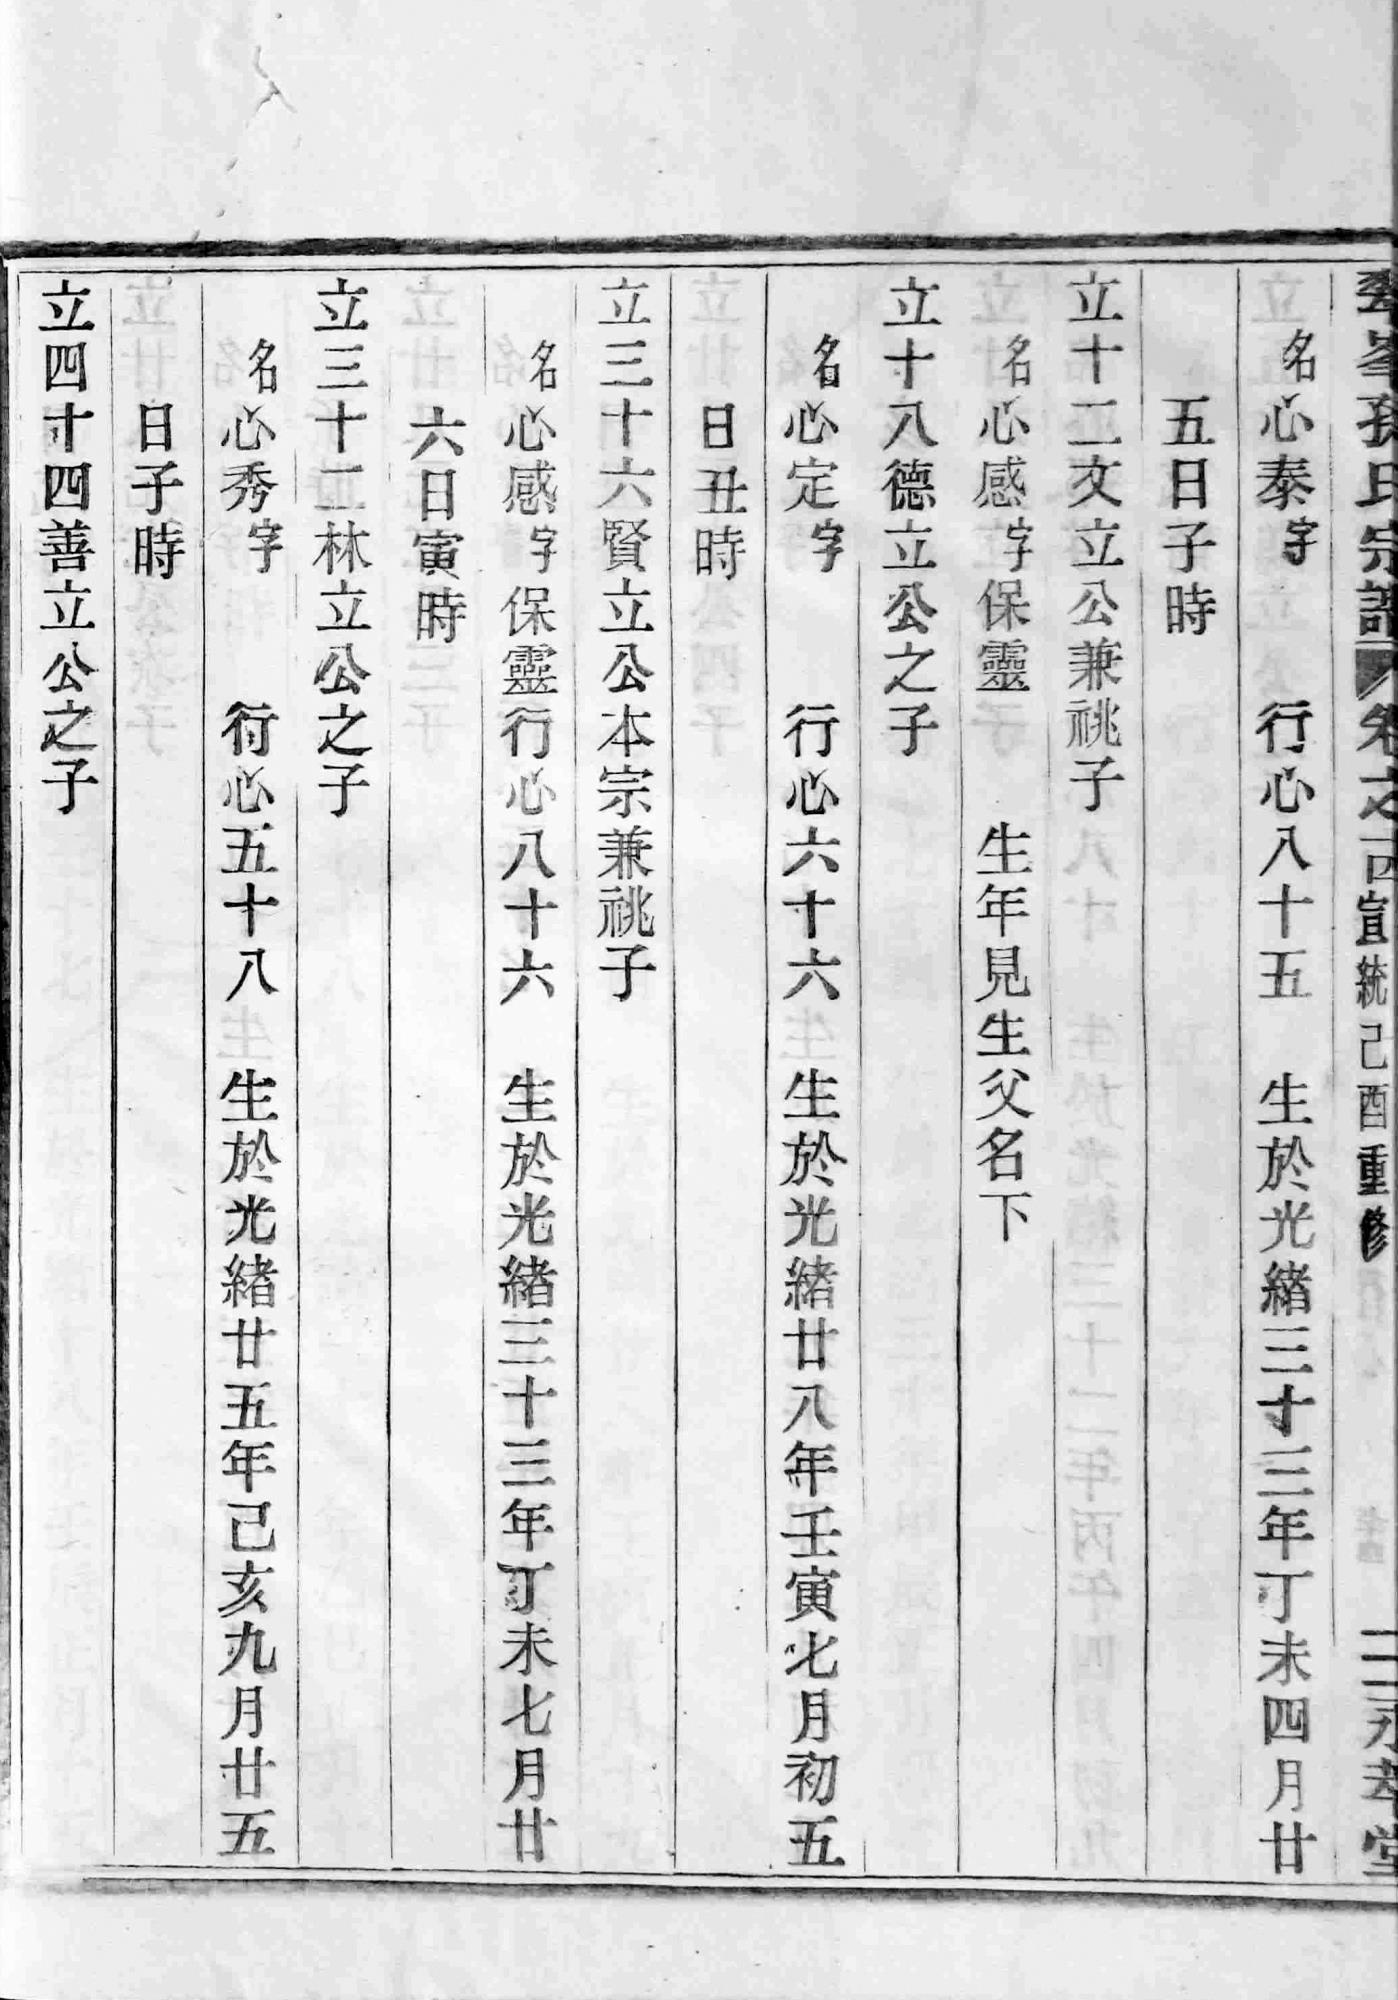 峯孫氏宗譜 卷之 宣統己酉重修 二 永孝堂
名心泰字 行心八十五 生於光緒三十三年丁未四月廿
五日子時
立十二文立公兼祧子
名心感字保靈 生年見生父名下
立十八德立公之子
名心定字 行心六十六 生於光緒廿八年壬寅七月初五
日丑時
立三十六賢立公本宗兼祧子
名心感字保靈行心八十六 生於光緒三十三年丁未七月廿
六日寅時
立三十二林立公之子
名心秀字 行心五十八 生於光緒廿五年己亥九月廿五
日子時
立四十四善立公之子